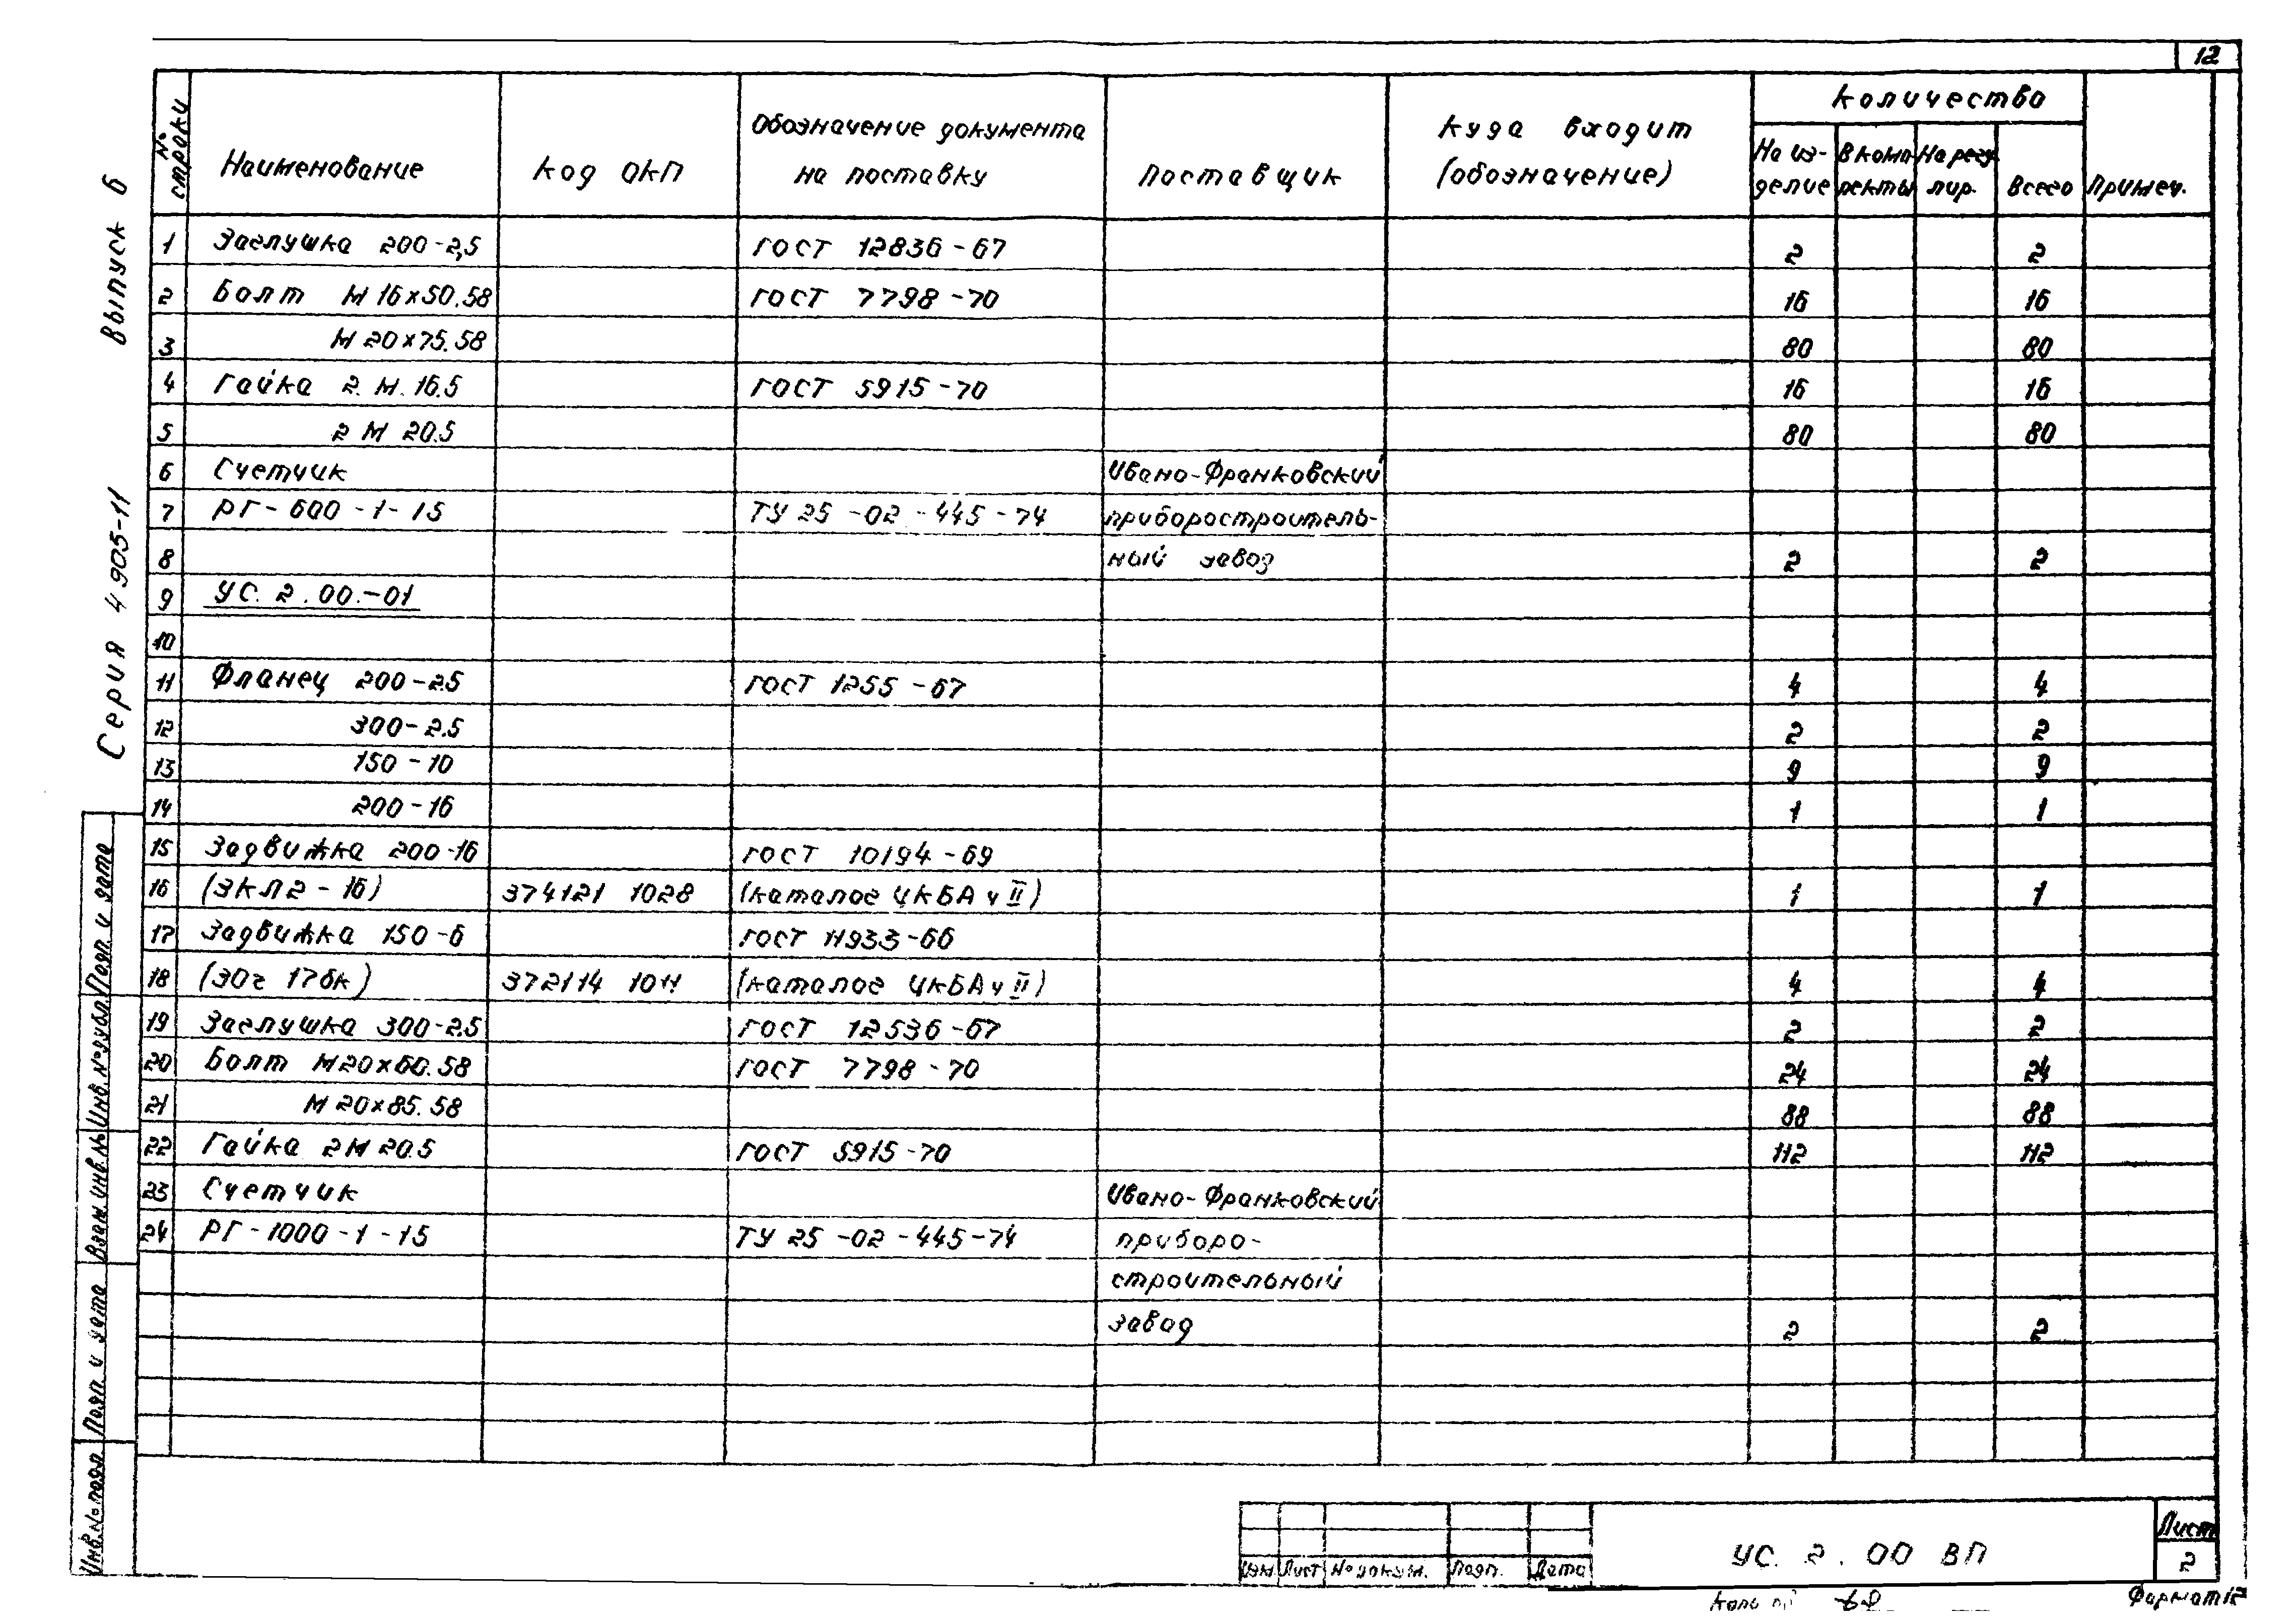 12
Серия 4 905-11 Выпуск 6
№ строки
Наименование
Код ОКП
Обозначение документа на поставку
Поставщик
Куда входит (обозначение)
Количество
На из-делие
В комп-лекты
На регу-лир.
Всего
Примеч.
1 Заглушка 200-2,5 ГОСТ 12836-67 2 2
2 Болт М16х50.58 ГОСТ 7798-70 16 16
3 М20х75.58 80 80
4 Гайка 2.М.16.5 ГОСТ 5915-70 16 16
5 2 М 20.5 80 80
6 Счетчик Ивано-Франковский
7 РГ-600-1-15 ТУ 25-02-445-74 приборостроитель-
8 ный завод 2 2
9 УС. 2.00.-01
10
11 Фланец 200-2.5 ГОСТ 1255-67 4 4
12 300-2.5 2 2
13 150-10 9 9
14 200-16 1 1
15 Задвижка 200-16 ГОСТ 10194-69
16 (ЗКЛ2-16) 374121 1028 (каталог ЦКБА ч II) 1 1
17 Задвижка 150-6 ГОСТ 11933-66
18 (30ч 17бк) 372114 1011 (каталог ЦКБА ч II) 4 4
19 Заглушка 300-2.5 ГОСТ 12536-67 2 2
20 Болт М20х60.58 ГОСТ 7798-70 24 24
21 М20х85.58 88 88
22 Гайка 2М 20.5 ГОСТ 5915-70 112 112
23 Счетчик Ивано-Франковский
24 РГ-1000-1-15 ТУ 25-02-445-74 приборо-
строительный
завод 2 2
Инв.№ подл. Подп. и дата Взам. инв.№ Инв.№ дубл. Подп. и дата
Изм Лист № докум. Подп. Дата
УС. 2.00 ВП
Лист
2
Формат 12